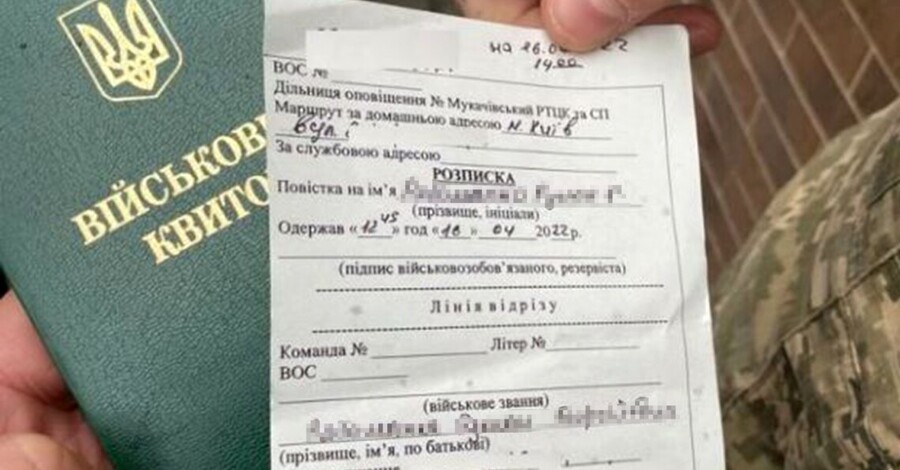 ВІЙСЬКОВ
КВИТО
на 16.0 22
14⁰⁰
ВОС №
Дільниця оповіщення № Мукачівський РТЦК та СП
Маршрут за домашньою адресою м. Київ
вул
За службовою адресою
РОЗПИСКА
Повістка на ім’я
(прізвище, ініціали)
Одержав «12⁴⁵» год «16» 04 2022 р.
(підпис військовозобов’язаного, резервіста)
Лінія відрізу
Команда № Літер №
ВОС
(військове звання)
(прізвище, ім’я, по батькові)